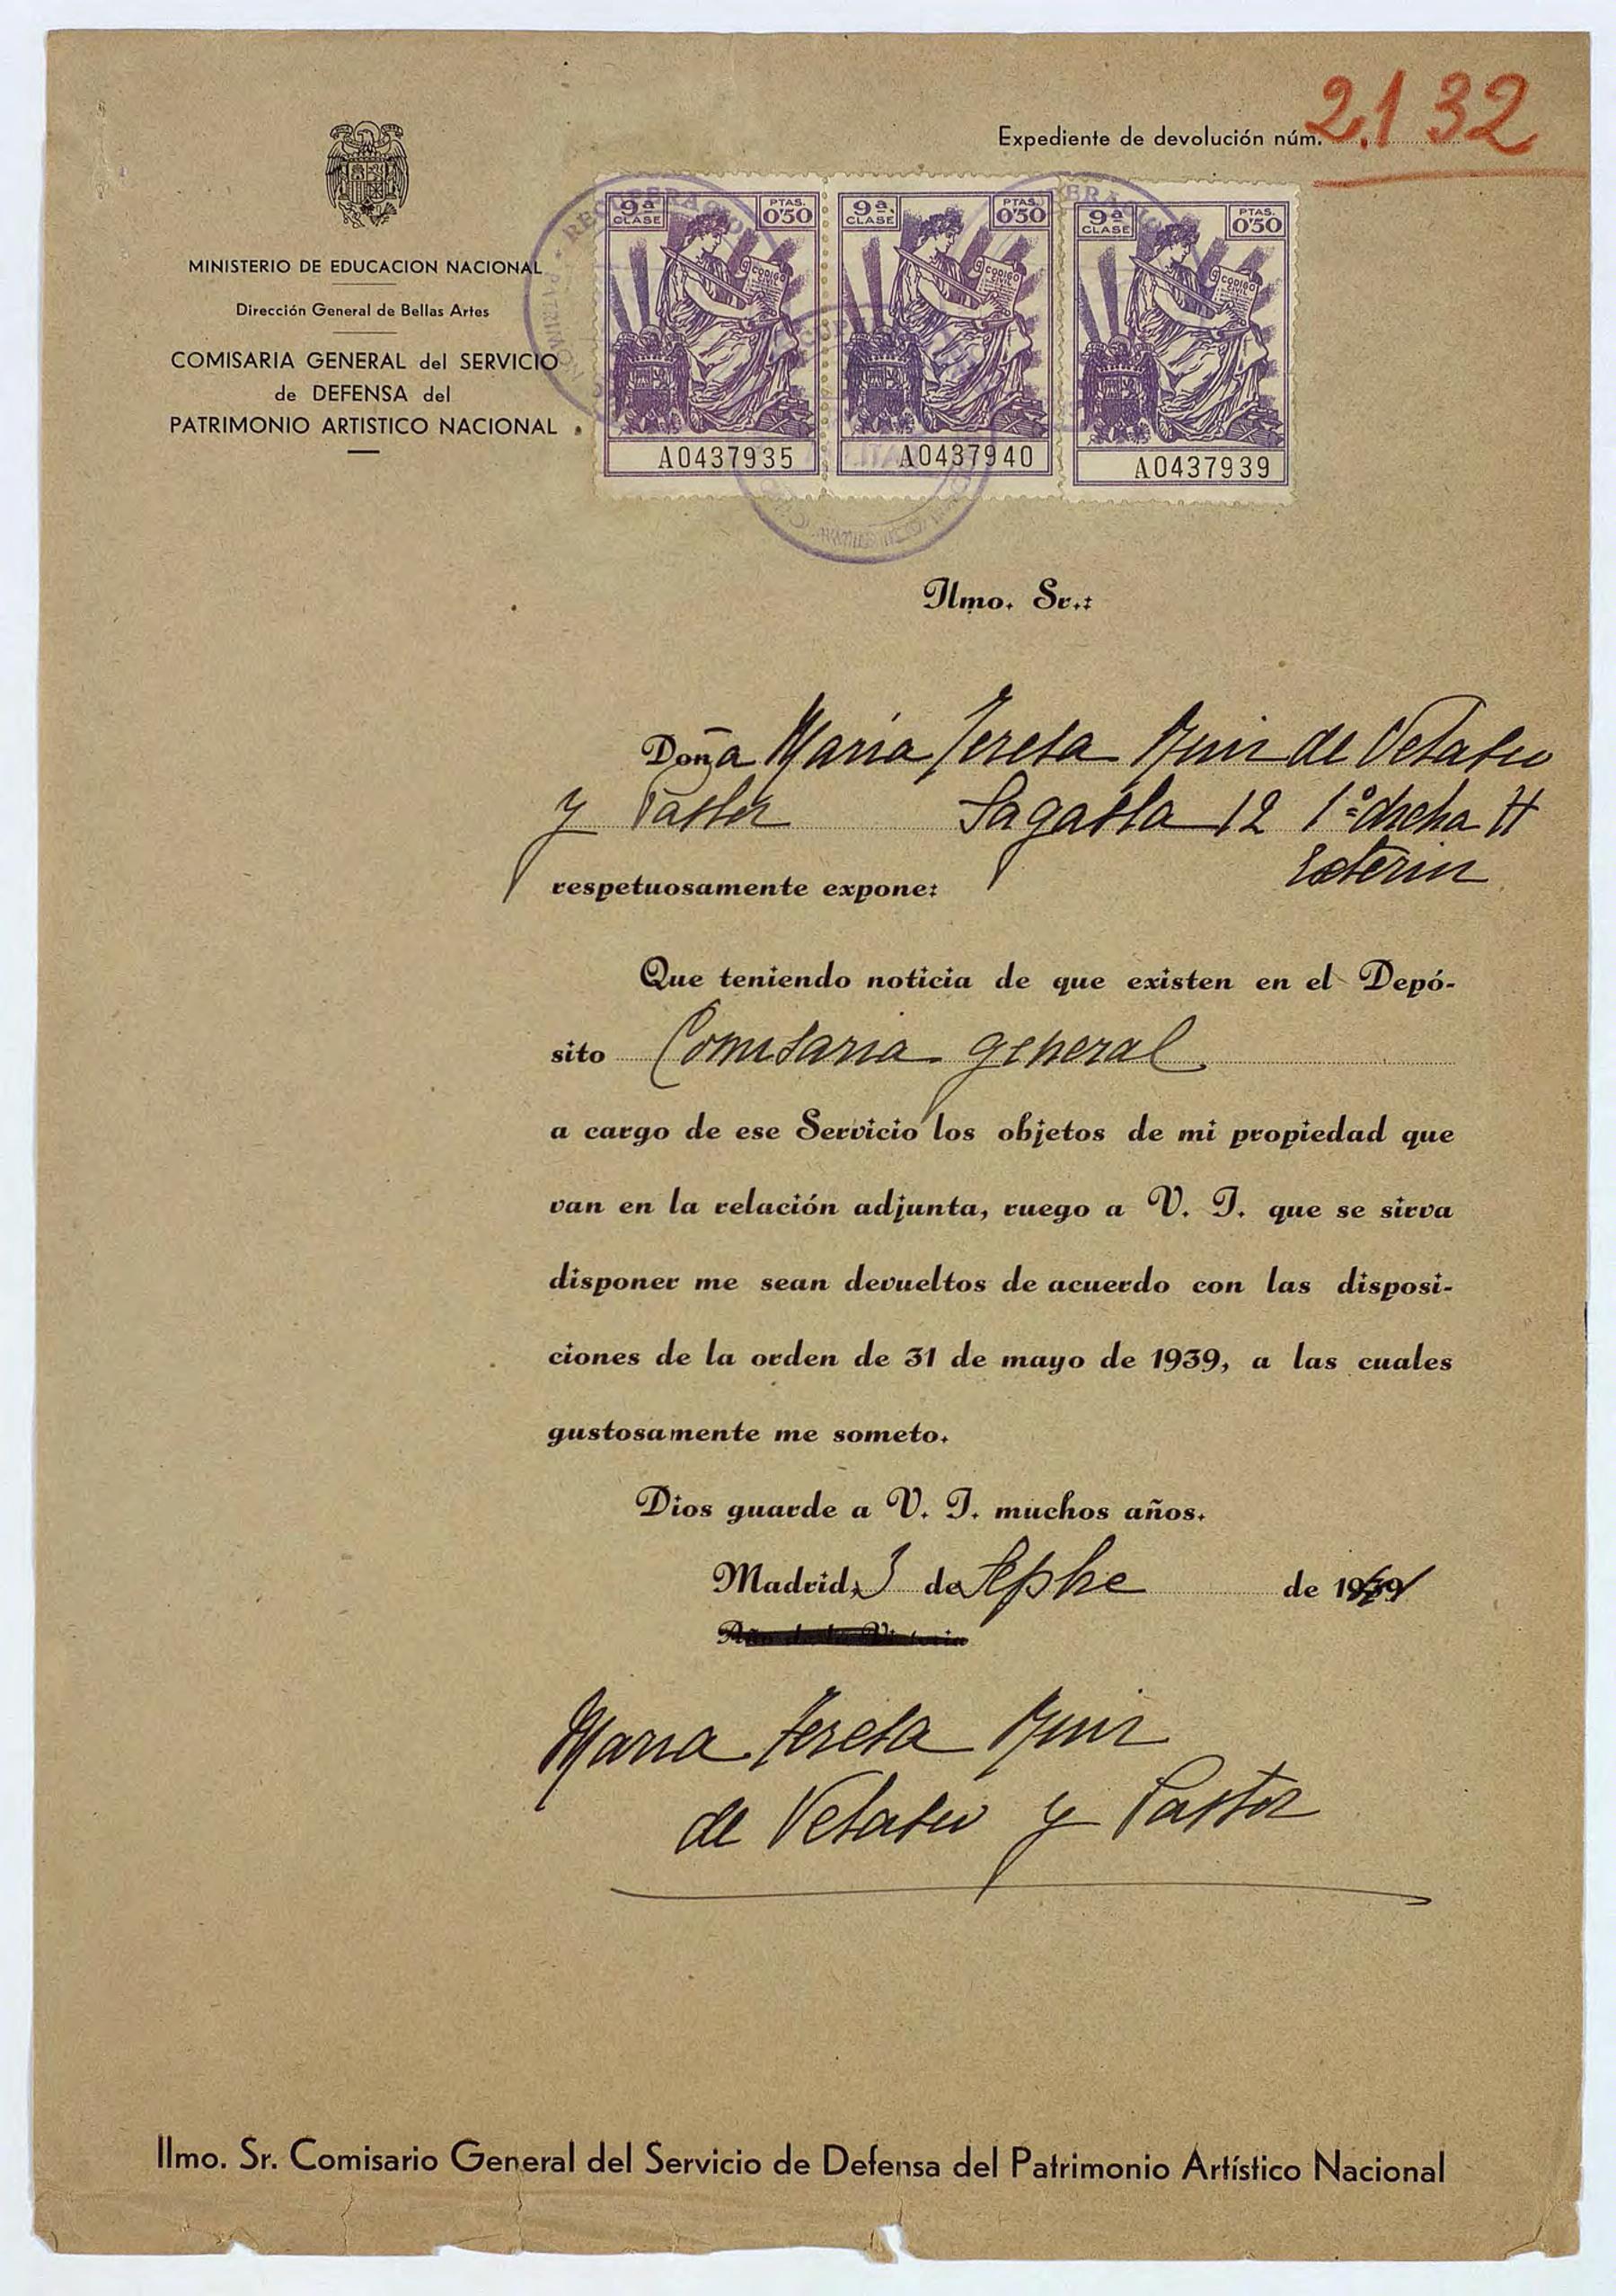 Expediente de devolución núm. 2.132
MINISTERIO DE EDUCACION NACIONAL
Dirección General de Bellas Artes
COMISARIA GENERAL del SERVICIO
de DEFENSA del
PATRIMONIO ARTISTICO NACIONAL
9ª CLASE PTAS. 0'50
CODIGO
A0437935
9ª CLASE PTAS. 0'50
CODIGO
A0437940
9ª CLASE PTAS. 0'50
CODIGO
A0437939
Ilmo. Sr.:
Doña María Teresa Ruiz de Velasco
y Pastor Sagasta 12 1º drcha
respetuosamente expone:
Que teniendo noticia de que existen en el Depó-
sito Comisaria general
a cargo de ese Servicio los objetos de mi propiedad que
van en la relación adjunta, ruego a V. I. que se sirva
disponer me sean devueltos de acuerdo con las disposi-
ciones de la orden de 31 de mayo de 1939, a las cuales
gustosamente me someto.
Dios guarde a V. I. muchos años.
Madrid, 3 de Sepbre de
Año de la Victoria
Maria Teresa Ruiz
de Velasco y Pastor
Ilmo. Sr. Comisario General del Servicio de Defensa del Patrimonio Artístico Nacional